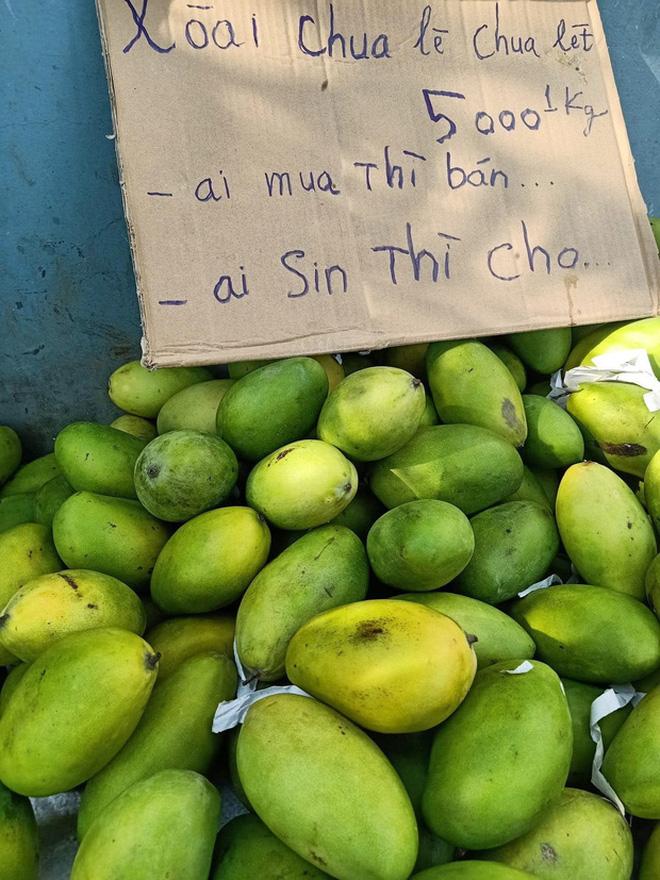 Xōai chua lē chua lét
5000 1Kg
- ai mua Thì bán...
- ai Sin Thì Cho...